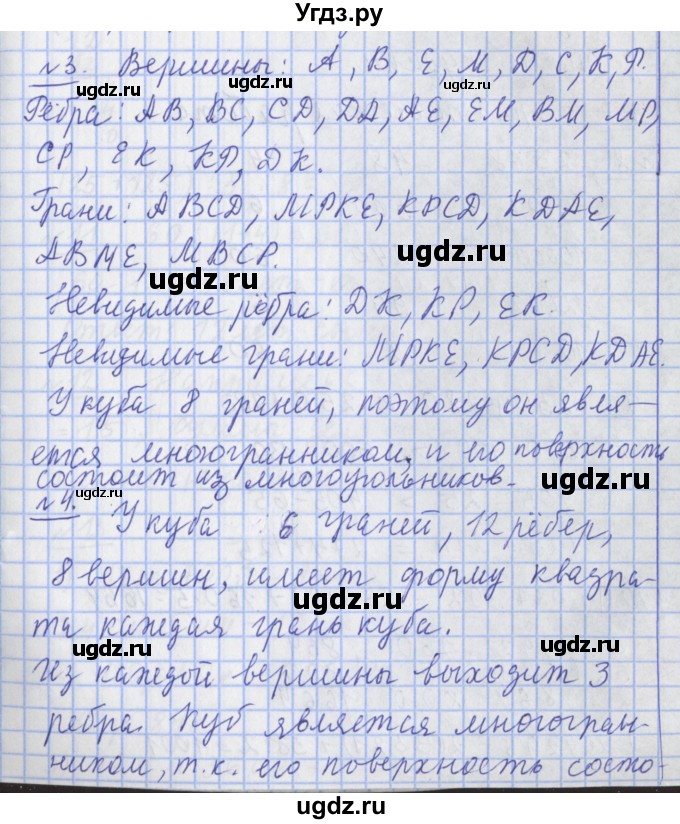 Угдз.ру
№3. Вершины: А, В, Е, М, Д, С, К, Р.
Рёбра: АВ, ВС, СД, ДА, АЕ, ЕМ, ВМ, МР,
СР, ЕК, КР, ДК.
Грани: АВСД, МРКЕ, КРСД, КДАЕ,
АВМЕ, МВСР.
Невидимые рёбра: ДК, КР, ЕК.
Невидимые грани: МРКЕ, КРСД, КДАЕ.
У куба 8 граней, поэтому он явля-
ется многогранником, и его поверхность
состоит из многоугольников.
№4. У куба 6 граней, 12 рёбер,
8 вершин, имеет форму квадра-
та каждая грань куба.
Из каждой вершины выходит 3
ребра. Куб является многогран-
ником, т.к. его поверхность состо-
ugdz.ru
ugdz.ru
ugdz.ru
ugdz.ru
ugdz.ru
ugdz.ru
ugdz.ru
ugdz.ru
ugdz.ru
ugdz.ru
ugdz.ru
ugdz.ru
ugdz.ru
ugdz.ru